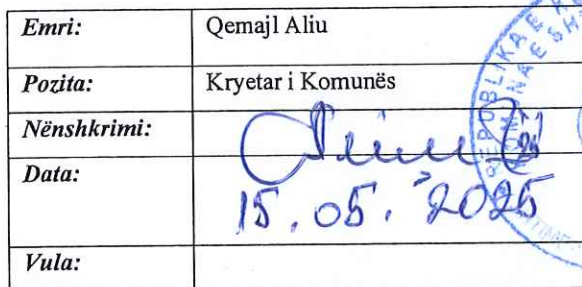 Emri: Qemajl Aliu
Pozita: Kryetar i Komunës
Nënshkrimi:
Data: 15.05.2025
Vula: